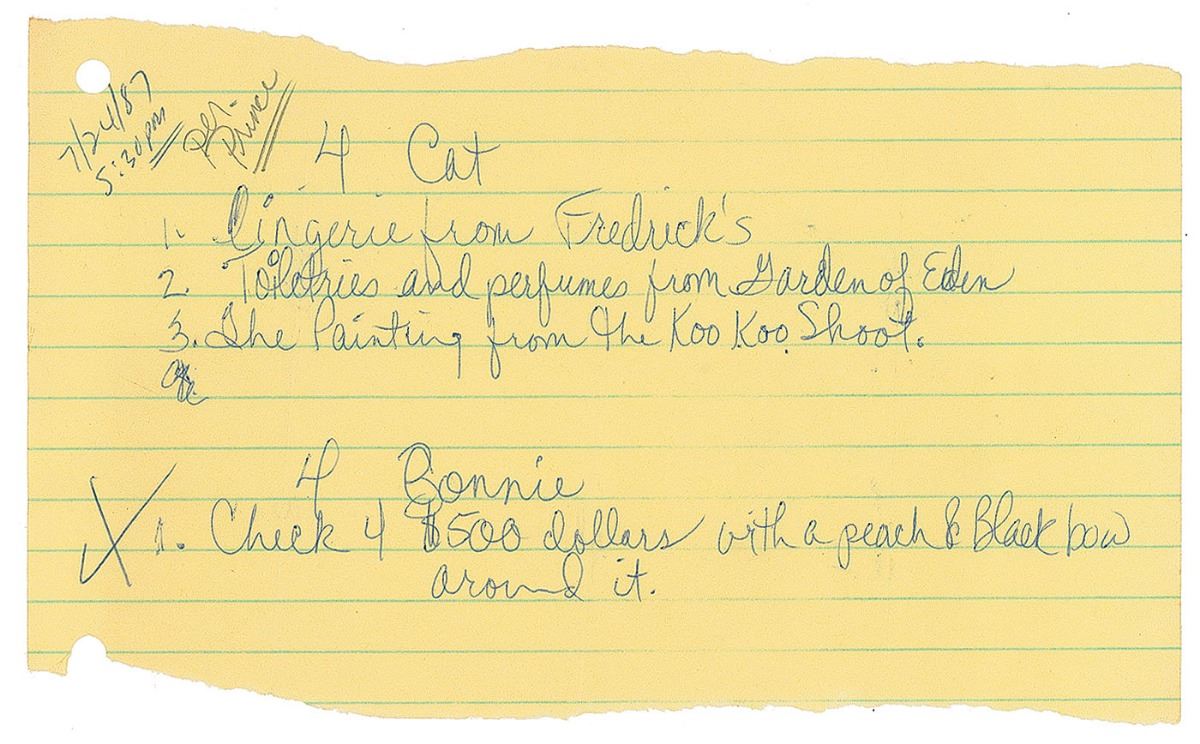 7/24/87
5:30pm
per.
Prince
4 Cat
1. Lingerie from Fredrick's
2. Toiletries and perfumes from Garden of Eden
3. The Painting from the Koo Koo Shoot.
4 Bonnie
1. Check 4 $500 dollars with a peach & Black bow
around it.